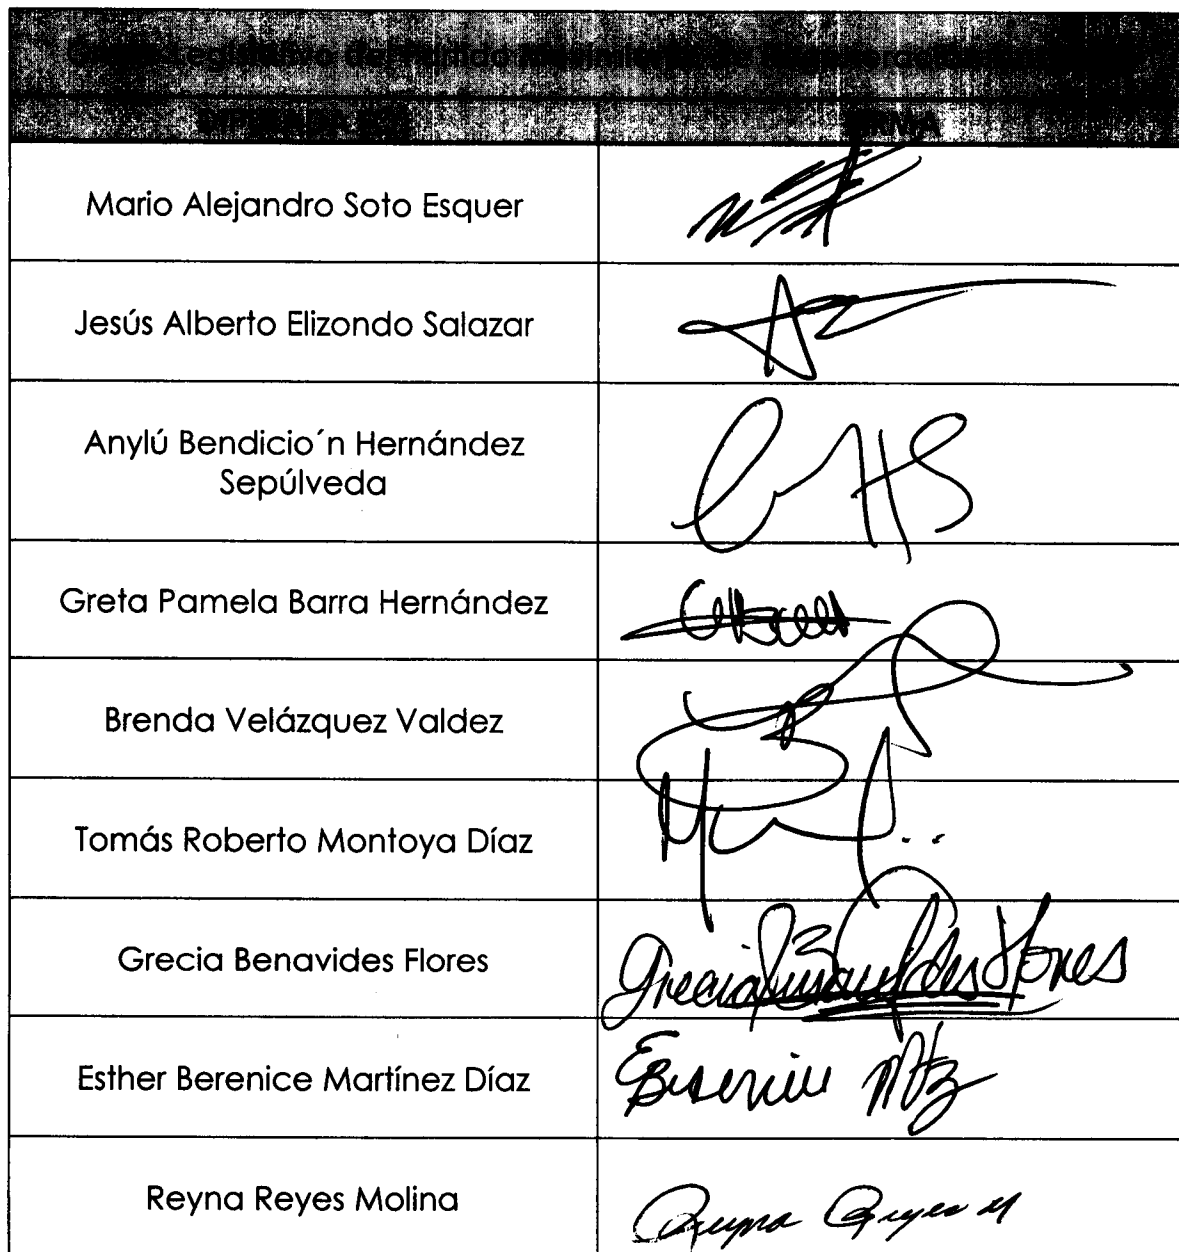 Grupo Legislativo del Partido
FIRMA
Mario Alejandro Soto Esquer
Jesús Alberto Elizondo Salazar
Anylú Bendicio´n Hernández
Sepúlveda
HS
Greta Pamela Barra Hernández
Brenda Velázquez Valdez
Tomás Roberto Montoya Díaz
Grecia Benavides Flores
Grecia Benavides Flores
Esther Berenice Martínez Díaz
EBerenice Mtz
Reyna Reyes Molina
Reyna Reyes M